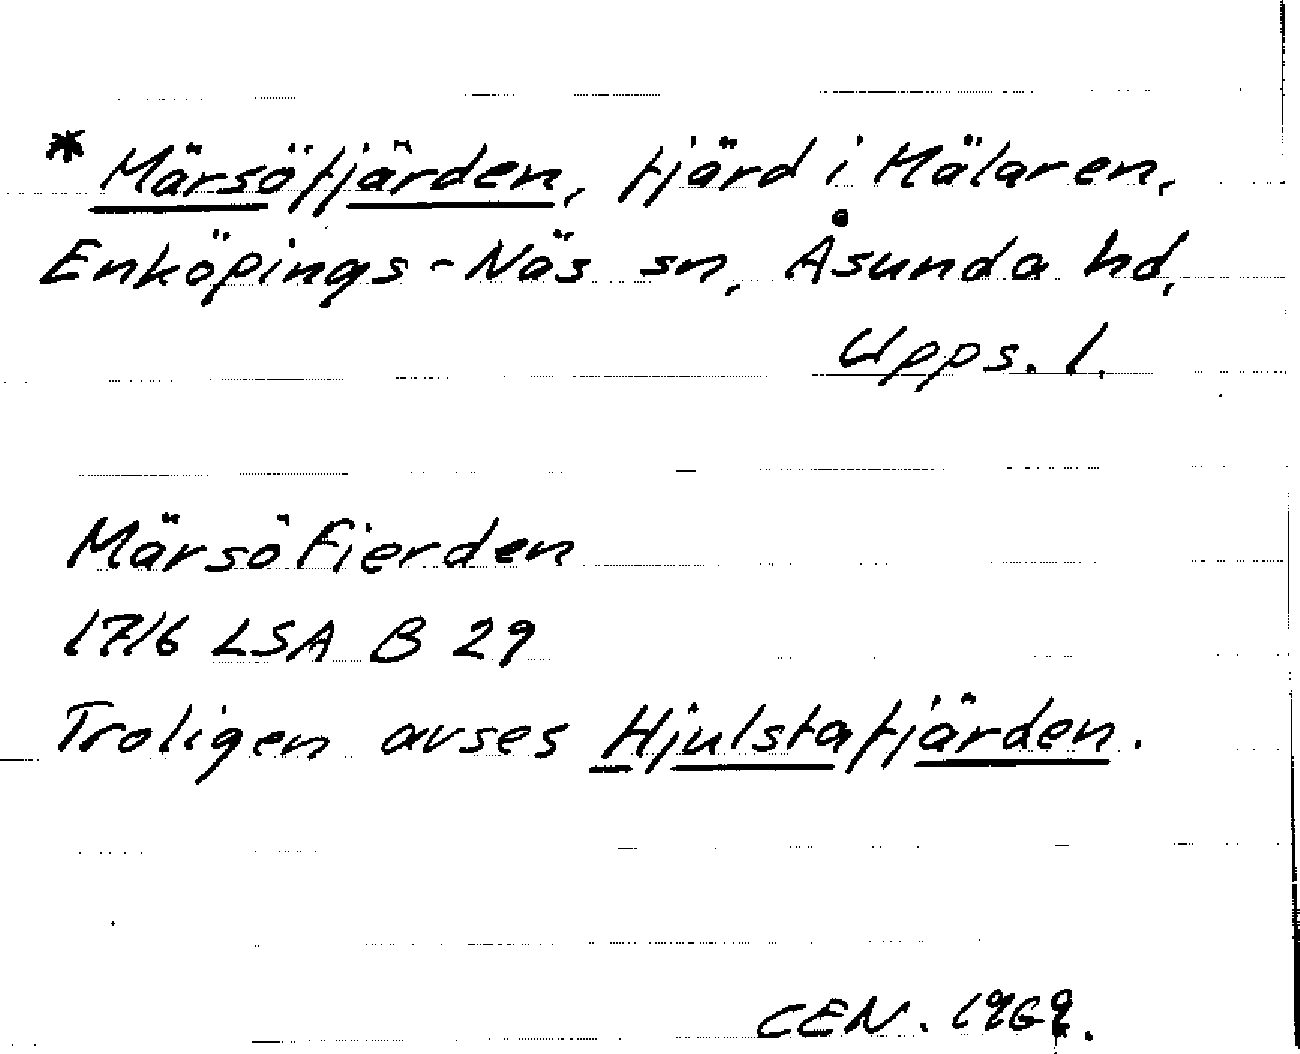 * Märsöfjärden, fjärd i Mälaren,
Enköpings-Näs sn, Åsunda hd,
Upps. l.
Märsöfierden
1716 LSA B 29
Troligen avses Hjulstafjärden.
CEN. 1969.